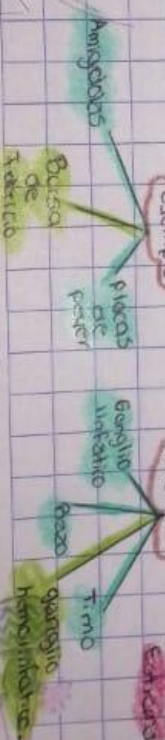 Amigdalas
Bolsa
de
Fabricio
placas
de
peyer
Ganglio
linfatico
Bazo
Timo
ganglio
hemolinfatico.